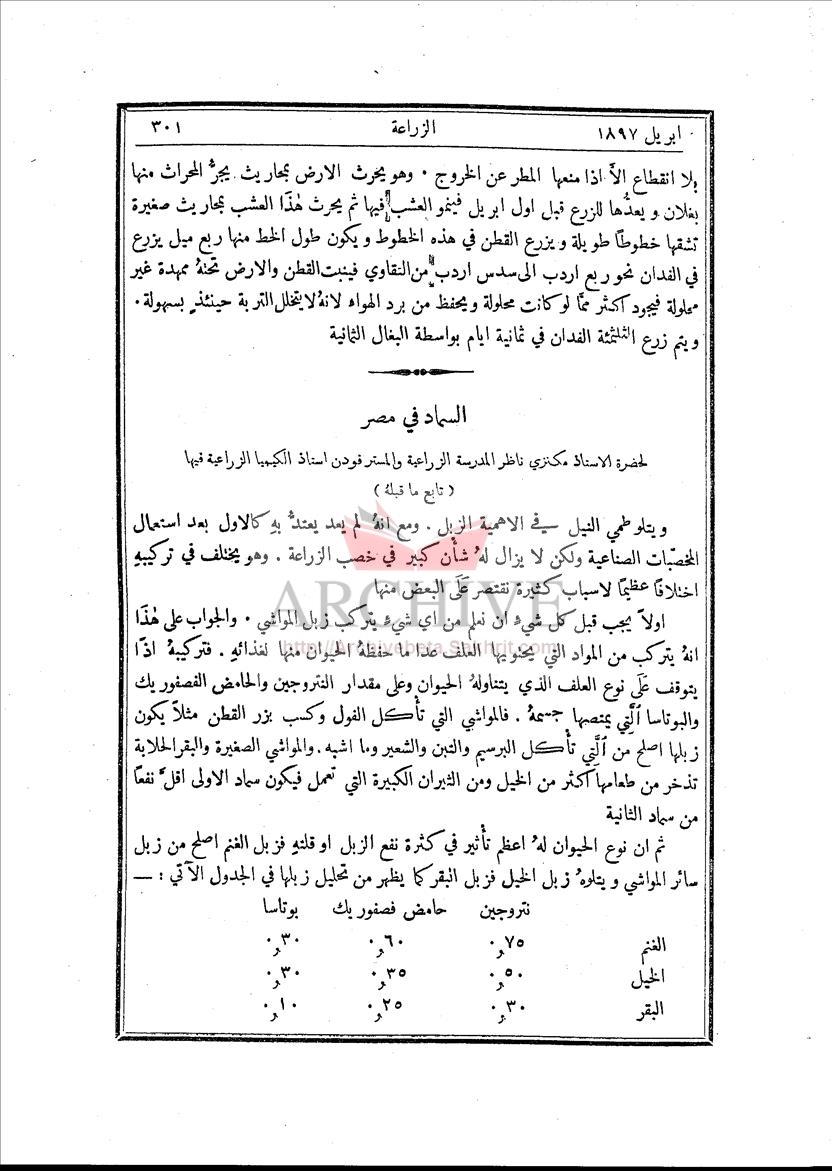 ابريل ١٨٩٧ الزراعة ٣٠١
بلا انقطاع الاَّ اذا منعها المطر عن الخروج . وهو يحرث الارض بمحاريث يجرُّ المحراث منها
بغلان ويعدُّها للزرع قبل اول ابريل فينمو العشب فيها ثم يحرث هٰذا العشب بمحاريث صغيرة
تشقها خطوطًا طويلة ويزرع القطن في هذه الخطوط ويكون طول الخط منها ربع ميل يزرع
في الفدان نحو ربع اردب الى سدس اردب من التقاوي فينبت القطن والارض تحتهُ ممهدة غير
محلولة فيجود اكثر ممَّا لو كانت محلولة ويحفظ من برد الهواء لانهُ لا يتخلل التربة حينئذٍ بسهولة .
ويتم زرع الثلثمئة الفدان في ثمانية ايام بواسطة البغال الثمانية
السماد في مصر
لحضرة الاستاذ مكنزي ناظر المدرسة الزراعية والمستر فودن استاذ الكيميا الزراعية فيها
( تابع ما قبلهُ )
ويتلو طمي النيل في الاهمية الزبل . ومع انهُ لم يعد يعتدُّ بهِ كالاول بعد استعمال
المخصّبات الصناعية ولكن لا يزال لهُ شأن كبير في خصب الزراعة . وهو يختلف في تركيبهِ
اختلافًا عظيمًا لاسباب كثيرة نقتصر عَلَى البعض منها
اولاً يجب قبل كل شيءٍ ان نعلم من اي شيءٍ يتركب زبل المواشي . والجواب على هٰذا
انهُ يتركب من المواد التي يحتويها العلف عدا ما حفظهُ الحيوان منها لغذائهِ . فتركيبهُ اذًا
يتوقف عَلَى نوع العلف الذي يتناولهُ الحيوان وعلى مقدار النتروجين والحامض الفصفوريك
والبوتاسا اَلَّتِي يمتصها جسمهُ . فالمواشي التي تأكل الفول وكسب بزر القطن مثلاً يكون
زبلها اصلح من اَلَّتِي تأكل البرسيم والتبن والشعير وما اشبه . والمواشي الصغيرة والبقر الحلابة
تذخر من طعامها اكثر من الخيل ومن الثيران الكبيرة التي تعمل فيكون سماد الاولى اقلَّ نفعًا
من سماد الثانية
ثم ان نوع الحيوان لهُ اعظم تأثير في كثرة نفع الزبل او قلتهِ فزبل الغنم اصلح من زبل
سائر المواشي ويتلوهُ زبل الخيل فزبل البقر كما يظهر من تحليل زبلها في الجدول الآتي : —
نتروجين حامض فصفوريك بوتاسا
الغنم ٠٫٧٥ ٠٫٦٠ ٠٫٣٠
الخيل ٠٫٥٠ ٠٫٣٥ ٠٫٣٠
البقر ٠٫٣٠ ٠٫٢٥ ٠٫١٠
ARCHIVE
http://Archivebeta.Sakhrit.com